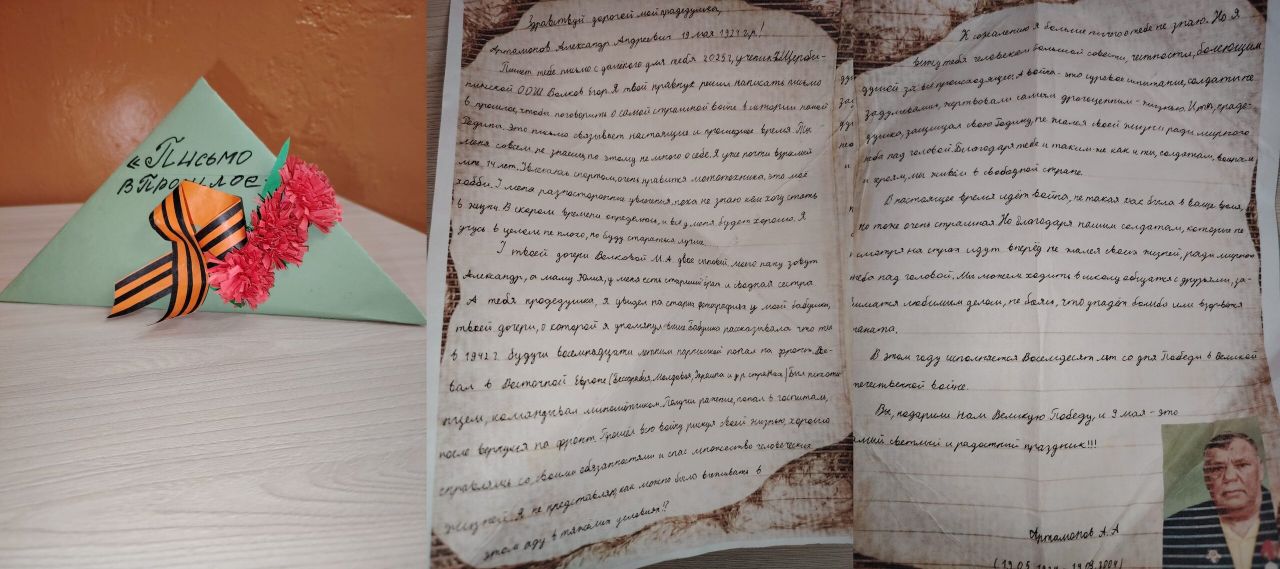 « Письмо
в Прошлое
Здравствуй дорогой мой прадедушка,
Артамонов Александр Андреевич 19 мая 1924 г.р!
Пишет тебе письмо с далёкого для тебя 2025 г, ученик Щерби-
нинской ООШ Волков Егор. Я твой правнук решил написать письмо
в прошлое, чтобы поговорить о самой страшной войне в истории нашей
Родины. Это письмо связывает настоящее и прошедшее время. Ты
меня совсем не знаешь, по этому немного о себе. Я уже почти взрослый
мне 14 лет. Увлекаюсь спортом, очень нравится мототехника, это моё
хобби. У меня разносторонние увлечения, пока не знаю кем хочу стать
в жизни. В скором времени определюсь, и всё у меня будет хорошо. Я
учусь в целом не плохо, но буду стараться лучше.
У твоей дочери Волковой М.А. двое сыновей, моего папу зовут
Александр, а маму Юлия, у меня есть старший брат и сводная сестра
А тебя продедушка, я увидел на старых фотографиях у моей бабушки,
твоей дочери, о которой я упомянул выше. Бабушка рассказывала что ты
в 1942 г. будучи восемнадцати летним парнишкой попал на фронт. Вое-
вал в Восточной Европе (Бессарабия, Молдавия, Украина и др странах) Был пехоти-
нцем, командовал миномётчиком. Получил ранение, попал в госпиталь,
после вернулся на фронт. Прошёл всю войну рискуя своей жизнью, хорошо
справлялся со своими обязанностями и спас множество человеческих
жизней. Я не представляю, как можно было выживать в
этом аду в тяжелых условиях!?
К сожалению я больше ничего о тебе не знаю. Но Я
вижу тебя человеком большой совести, честности, болеющим
душой за всё происходящее. А война - это суровое испытание, солдаты не
задумываясь, жертвовали самым дрогоценным - жизнью. И ты, праде-
душка, защищая свою Родину, не жалея своей жизни ради мирного
неба над головой. Благодаря тебе и таким же как и ты, солдатам, воинам
и героям, мы живём в свободной стране.
В настоящее время идёт война, не такая как была в ваше время,
но тоже очень страшная. Но благодаря нашим солдатам, которые не
смотря на страх идут вперёд не жалея своих жизней, ради мирного
неба над головой. Мы можем ходить в школу, общатся с друзьями, за-
ниматся любимым делом, не боясь, что упадёт бомба или взорвётся
граната.
В этом году исполняется Восемдесят лет со дня Победы в Великой
отечественной войне.
Вы, подарили нам Великую Победу, и 9 мая - это
самый светлый и радостный праздник!!!
Артамонов А.А
(19.05.1924 - 19.09.2004)